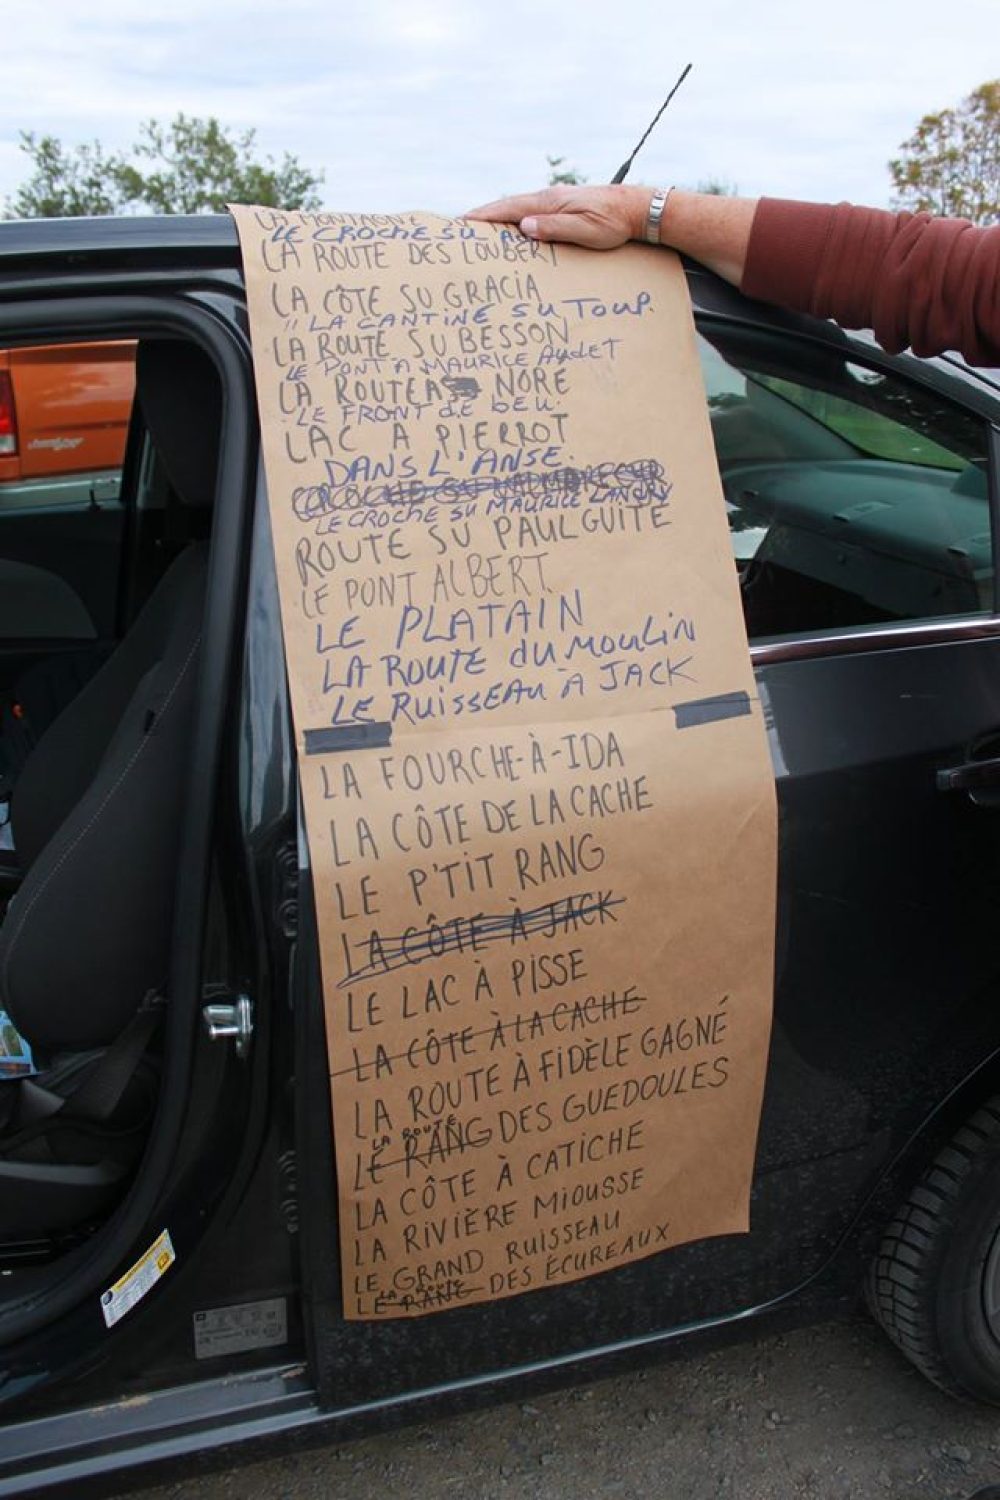 LA MONTAGNE
LE CROCHE SU
LA ROUTE DES LOUBERT
LA CÔTE SU GRACIA
" LA CANTINE SU TOUP.
LA ROUTE SU BESSON
LE PONT A MAURICE AUDET
LA ROUTE A NORE
LE FRONT de beu
LAC A PIERROT
DANS L'ANSE.
LE CROCHE SU MAURICE LANDRY
ROUTE SU PAUL GUITE
LE PONT ALBERT
LE PLATAIN
LA ROUTE du MOULIN
LE RUISSEAU À JACK
LA FOURCHE-À-IDA
LA CÔTE DE LA CACHE
LE P'TIT RANG
LA CÔTE À JACK
LE LAC À PISSE
LA CÔTE À LA CACHE
LA ROUTE À FIDÈLE GAGNÉ
LA ROUTE
LE RANG DES GUEDOULES
LA CÔTE À CATICHE
LA RIVIÈRE MIOUSSE
LE GRAND RUISSEAU
LA ROUTE
LE RANG DES ÉCUREAUX